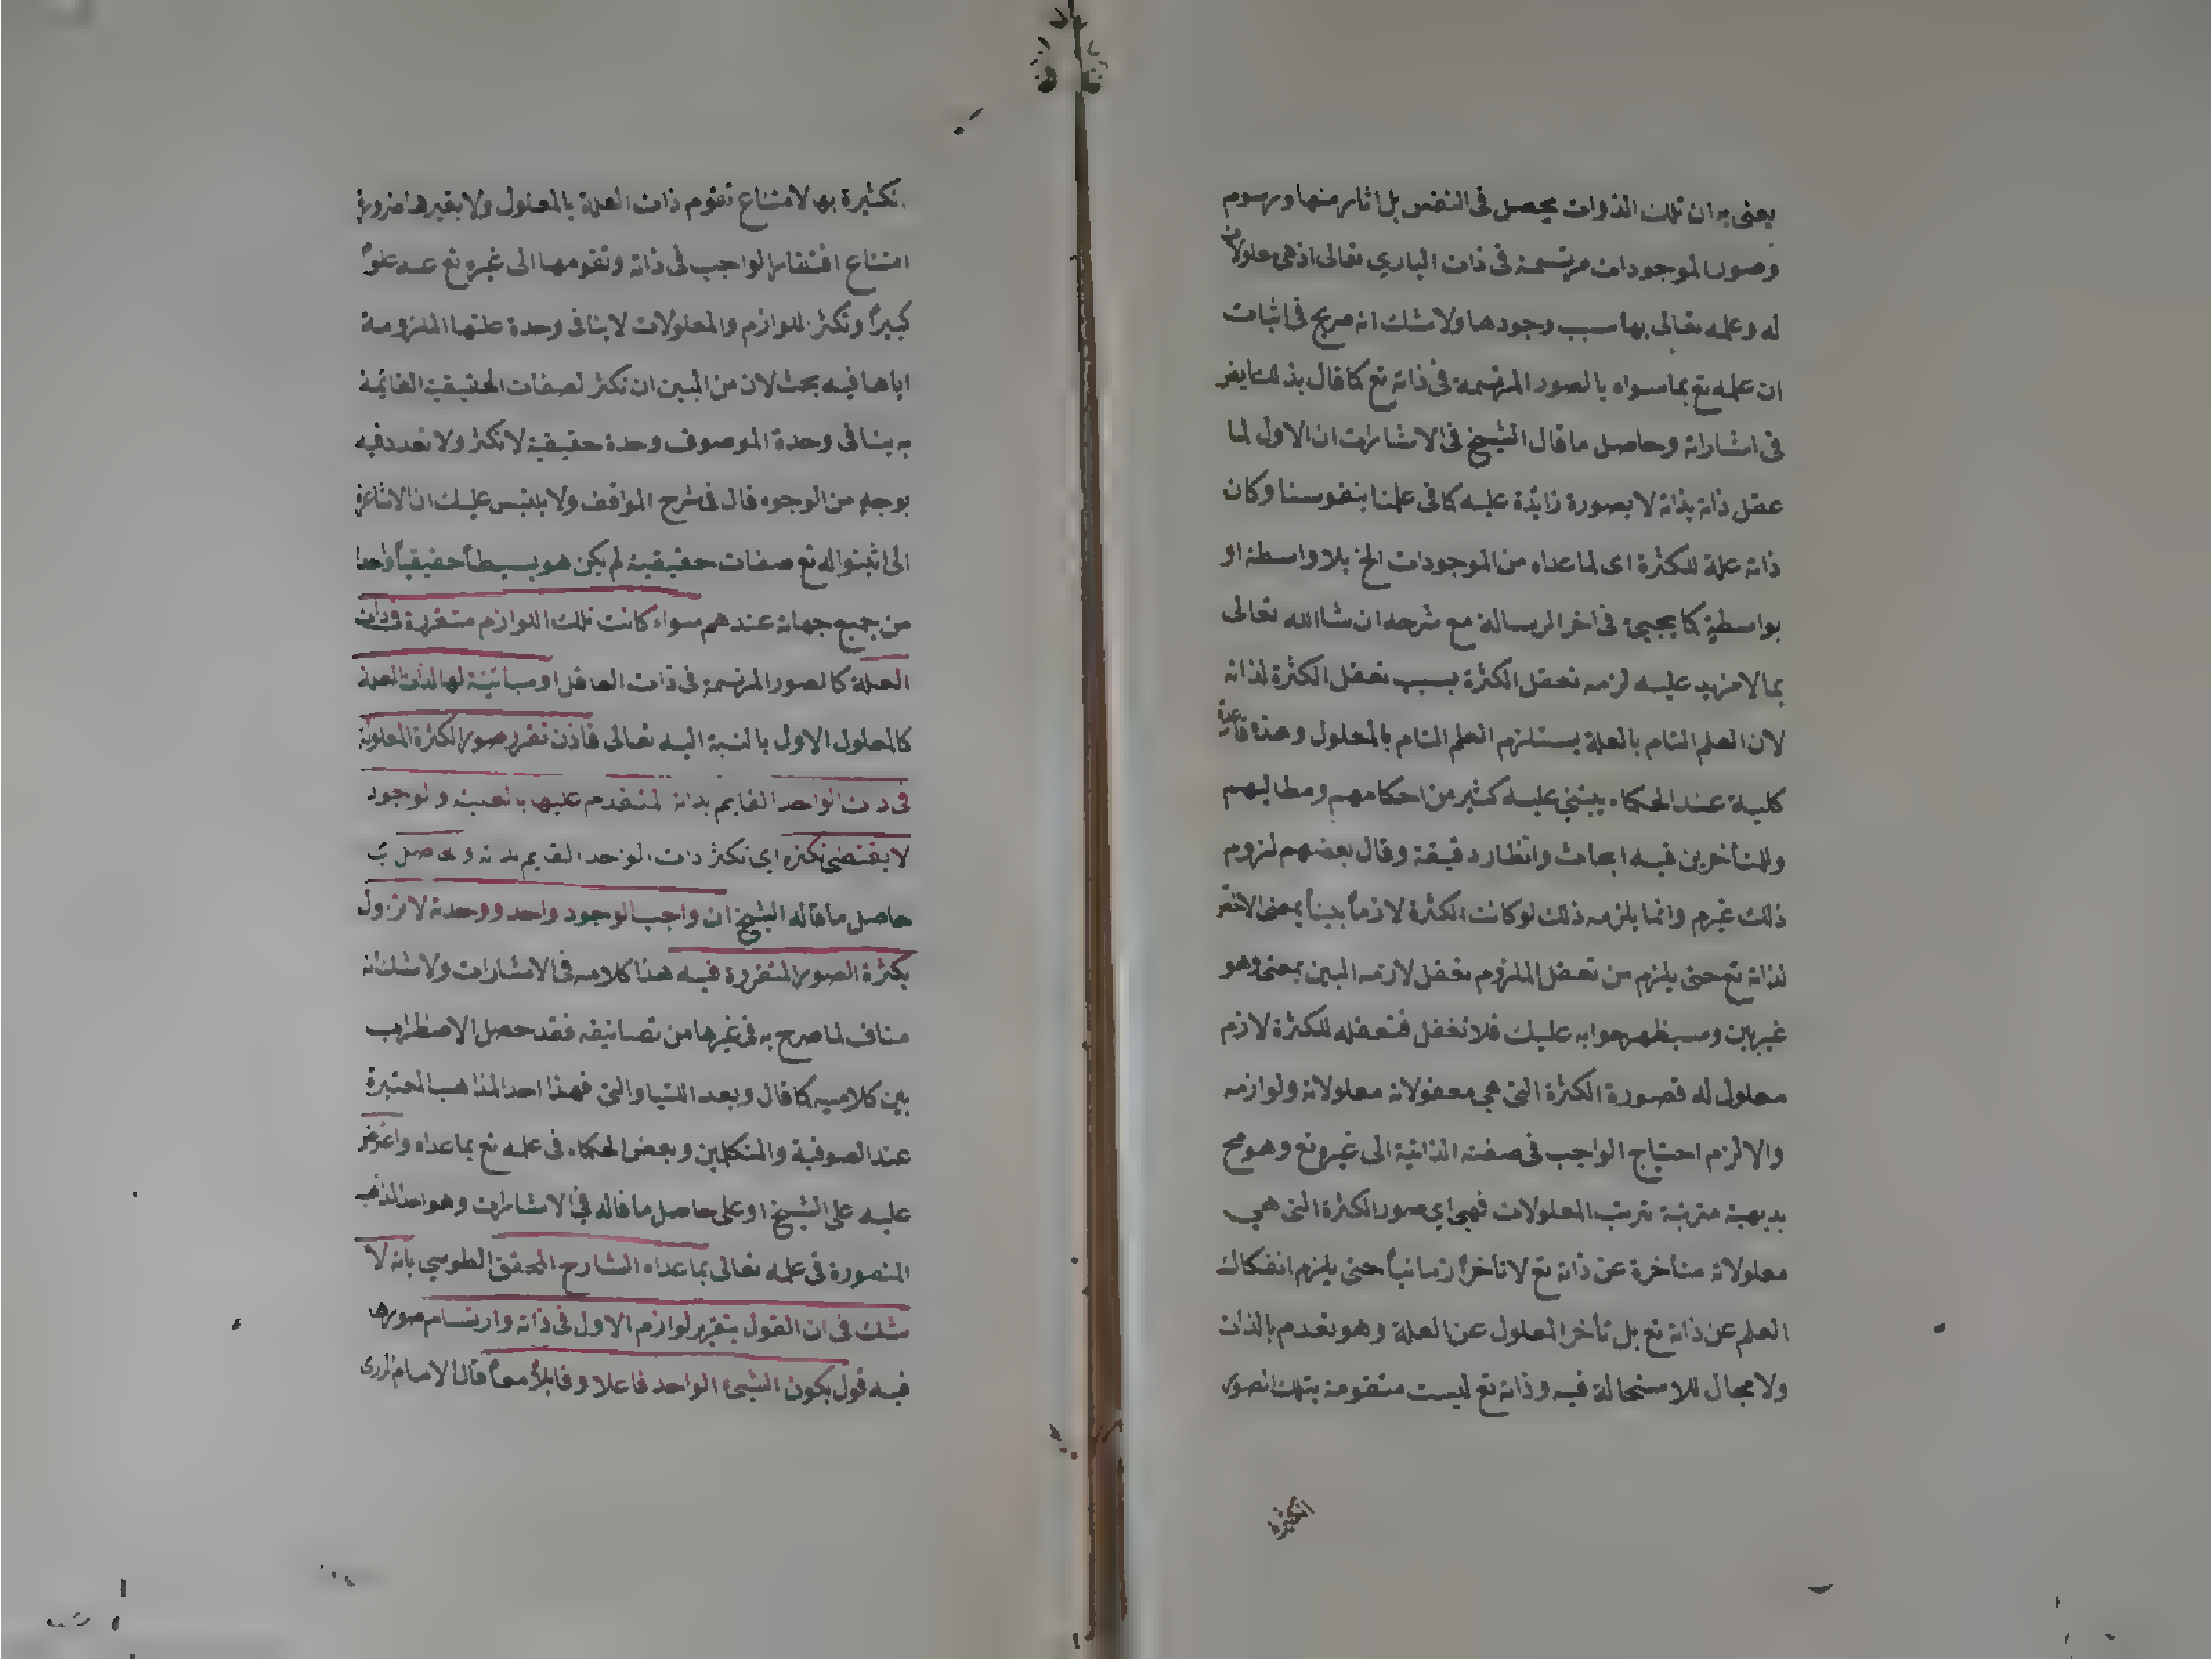 يعنى به ان تلك الذوات يحصل فى النفس بل اثار منها ورسوم
وصور الموجودات مرتسمة فى ذات البارى تعالى اذ هى معلولات
له وعلمه تعالى بها سبب وجودها ولا شك انه صريح فى اثبات
ان علمه تع بما سواه بالصور المرتسمة فى ذاته تع كما قال بذلك ايض
فى اشاراته وحاصل ما قال الشيخ فى الاشارات ان الاول لما
عقل ذاته بذاته لا بصورة زائدة عليه كما فى علمنا بنفوسنا وكان
ذاته علة للكثرة اى لما عداه من الموجودات الخ بلا واسطة او
بواسطة كما يجيئ فى اخر الرسالة مع شرحه ان شاالله تعالى
بما لا مزيد عليه لزمه تعقل الكثرة بسبب تعقل الكثرة لذاته
لان العلم التام بالعلة يستلزم العلم التام بالمعلول وهذه قاعدة
كلية عند الحكماء يبتنى عليه كثير من احكامهم ومطالبهم
وللمتأخرين فيه ابحاث وانظار دقيقة وقال بعضهم لزوم
ذلك غيرم وانما يلزمه ذلك لو كانت الكثرة لازماً بيناً بمعنى الاخص
لذاته تع حتى يلزم من تعقل الملزوم تعقل لازمه البين بمعنى وهو
غيربين وسيظهر جوابه عليك فلا تغفل فتعقله للكثرة لازم
معلول له فصورة الكثرة التى هى معقولاته معلولاته ولوازمه
والا لزم احتياج الواجب فى صفته الذاتية الى غيره تع وهو مح
بديهية مترتبة ترتب المعلولات فهى اى صور الكثرة التى هي
معلولاته متأخرة عن ذاته تع لا تأخراً زمانياً حتى يلزم انفكاك
العلم عن ذاته تع بل تأخر المعلول عن العلة وهو تقدم بالذات
ولا مجال للاستحالة فيه وذاته تع ليست متقومة بتلك الصور
الكثيرة
تكثيرة بها لامتناع تقوم ذات العلة بالمعلول ولا بغيرها ضرورة
امتناع افتقار الواجب فى ذاته وتقومها الى غيره تع عنه علوّاً
كبيراً وتكثر اللوازم والمعلولات لا ينافى وحدة علتها الملزومة
اياها فيه بحث لان من البين ان تكثر لصفات الحقيقية القائمة
به ينافى وحدة الموصوف وحدة حقيقية لا تكثر ولا تعدد فيه
بوجه من الوجوه قال فى شرح المواقف ولا يلتبس عليك ان الاشاعرة
الى اثبتوا له تع صفات حقيقية لم يكن هو بسيطاً حقيقياً واحدا
من جميع جهاته عندهم سواء كانت تلك اللوازم متقررة فى ذات
العلة كالصور المرتسمة فى ذات العاقل او مباينة لها لذات العلة
كالمعلول الاول بالنسبة اليه تعالى فاذن تقرر صور الكثرة المعلولة
فى ذات الواحد القايم بذاته المتقدم عليها بالعلية والوجود
لا يقتضى تكثره اى تكثر ذات الواحد القايم بذاته والحاصل
حاصل ما قاله الشيخ ان واجب الوجود واحد ووحدته لا تزول
بكثرة الصور المتقررة فيه هذا كلامه فى الاشارات ولا شك انه
مناف لما صرح به فى غيرها من تصانيفه فقد حصل الاضطراب
بين كلاميه كما قال وبعد اللتيا والتى فهذا احد المذاهب المعتبرة
عند الصوفية والمتكلمين وبعض الحكماء فى علمه تع بما عداه واعترض
عليه على الشيخ او على حاصل ما قاله فى الاشارات وهو احد المذاهب
المنصورة فى علمه تعالى بما عداه الشارح المحقق الطوسي بانه لا
شك فى ان القول بتقرير لوازم الاول فى ذاته وارتسام صورها
فيه قول بكون الشىء الواحد فاعلا وقابلاً معاً قال الامام الرازى